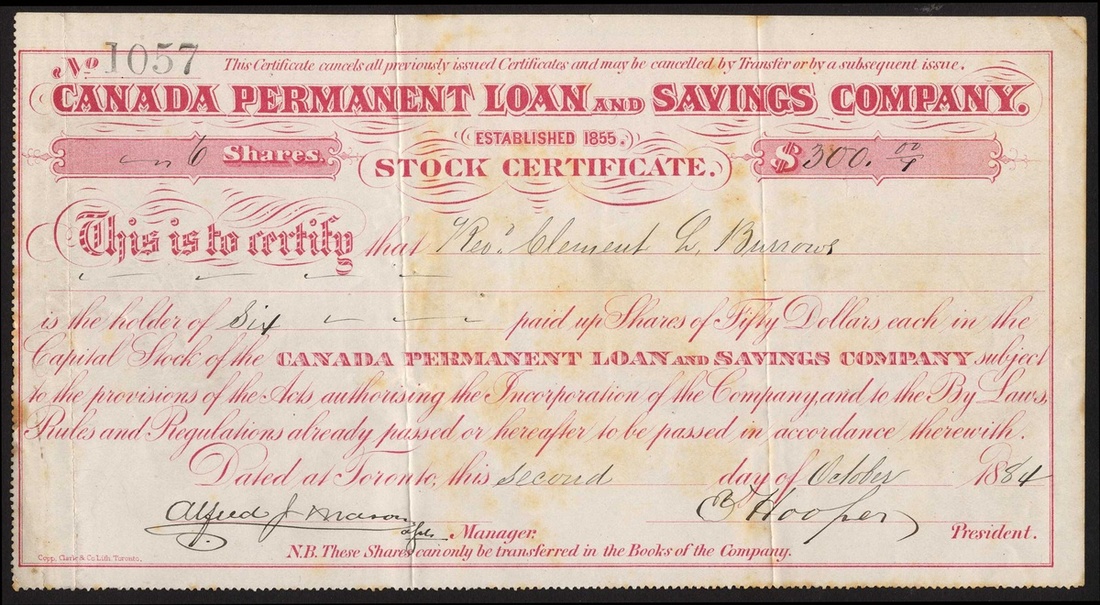 No 1057
This Certificate cancels all previously issued Certificates and may be cancelled by Transfer or by a subsequent issue.
CANADA PERMANENT LOAN AND SAVINGS COMPANY.
ESTABLISHED 1855.
6 Shares.
STOCK CERTIFICATE.
$300.00
This is to certify that Revd. Clement L. Burrows
is the holder of Six paid up Shares of Fifty Dollars each in the
Capital Stock of the CANADA PERMANENT LOAN AND SAVINGS COMPANY subject
to the provisions of the Acts authorising the Incorporation of the Company, and to the By Laws,
Rules and Regulations already passed or hereafter to be passed in accordance therewith.
Dated at Toronto, this second day of October 1884
Alfred J Mason Manager.
Hooper President.
N.B. These Shares can only be transferred in the Books of the Company.
Copp, Clark & Co. Lith. Toronto.